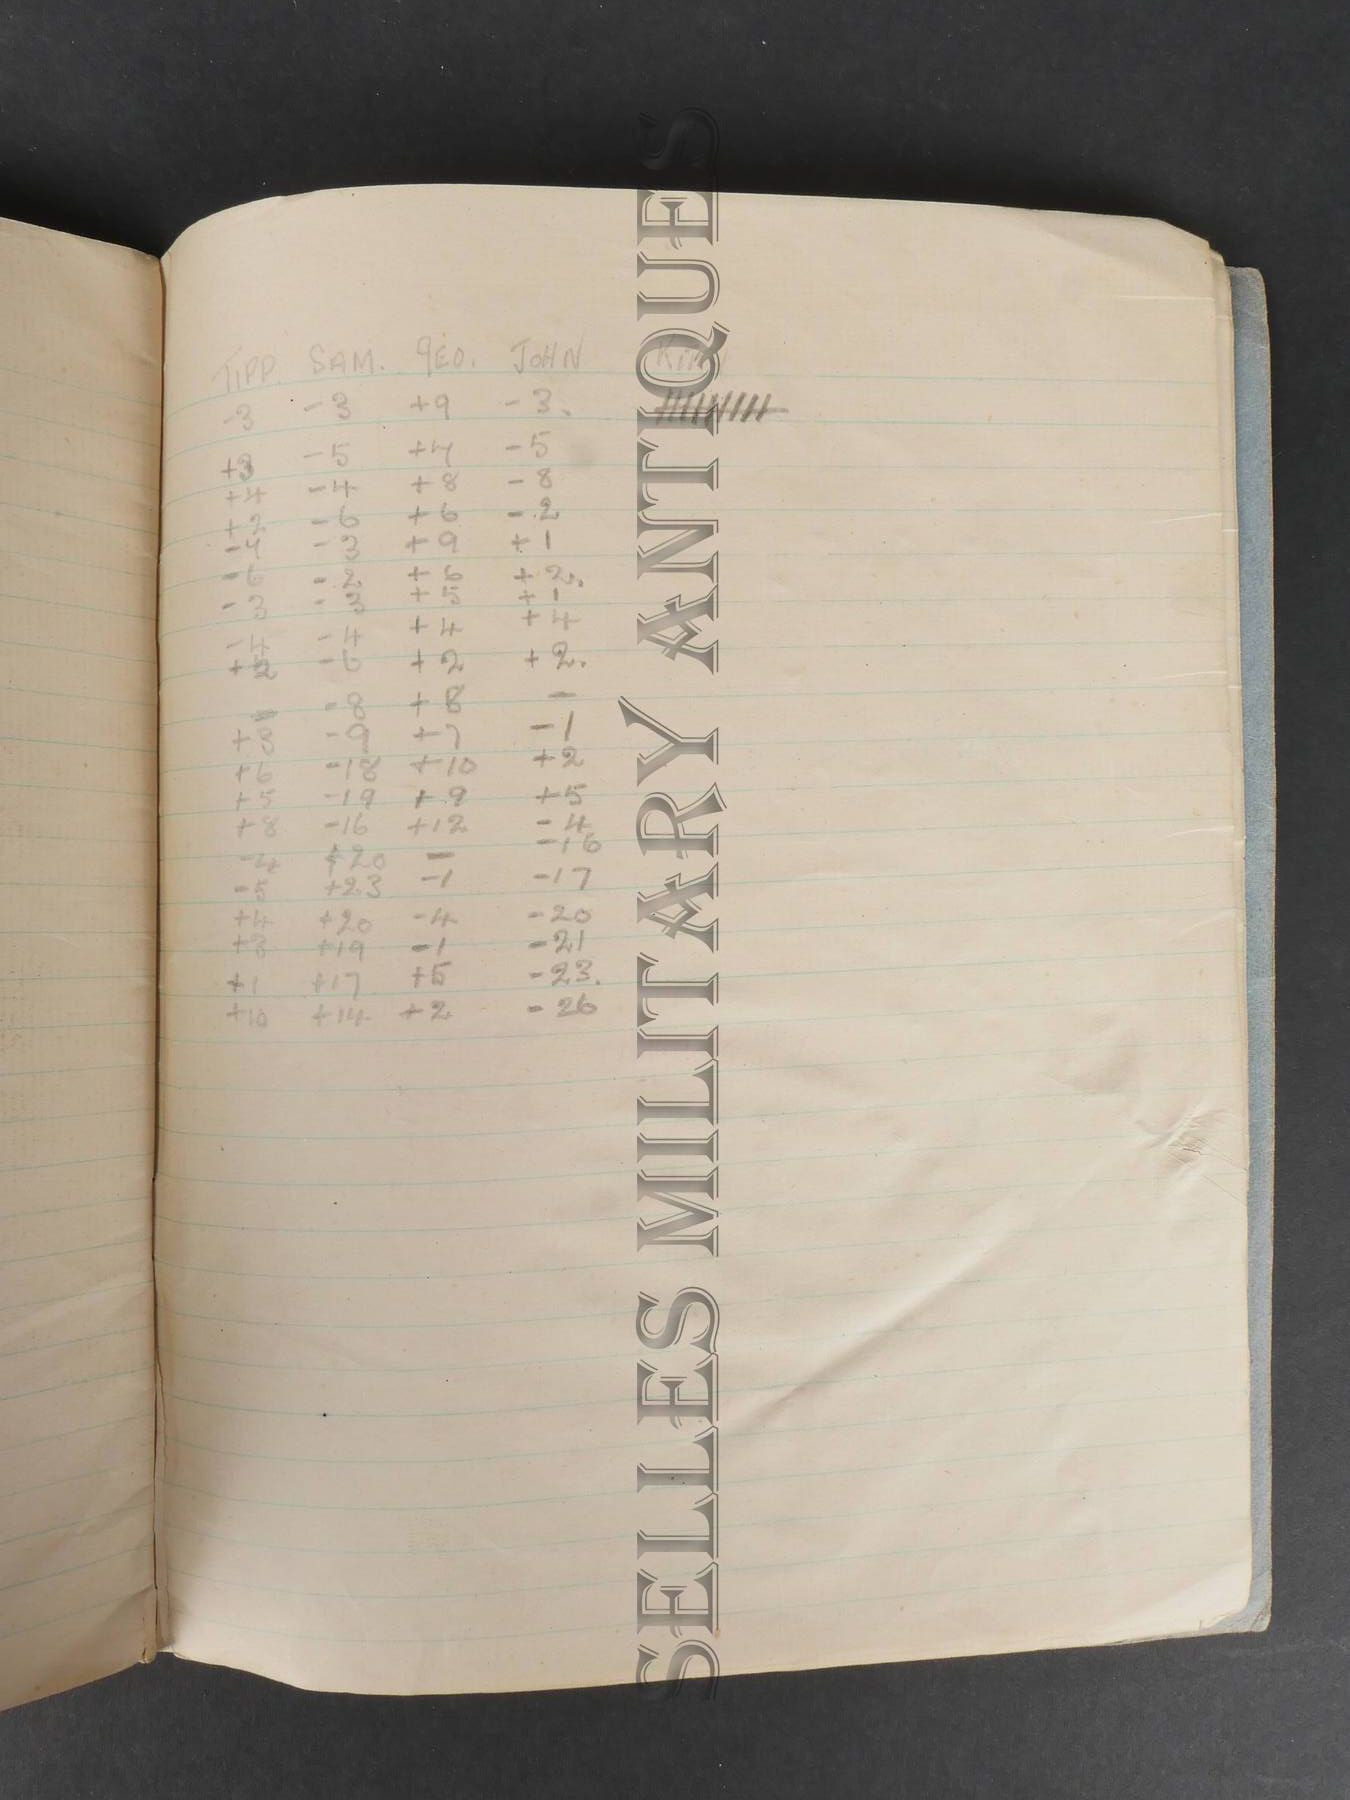 TIPP. SAM. GEO. JOHN
-3 -3 +9 -3.
+3 -5 +4 -5
+4 -4 +8 -8
+2 -6 +6 -2
-4 -3 +9 +1
-6 -2 +6 +2.
-3 -3 +5 +1
-4 -4 +4 +4
+2 -6 +2 +2.
- -8 +8 -
+3 -9 +7 -1
+6 -18 +10 +2
+5 -19 +9 +5
+8 -16 +12 -4
-4 +20 - -16
-5 +23 -1 -17
+4 +20 -4 -20
+3 +19 -1 -21
+1 +17 +5 -23.
+10 +14 +2 -26
SELLES MILITARY ANTIQUES